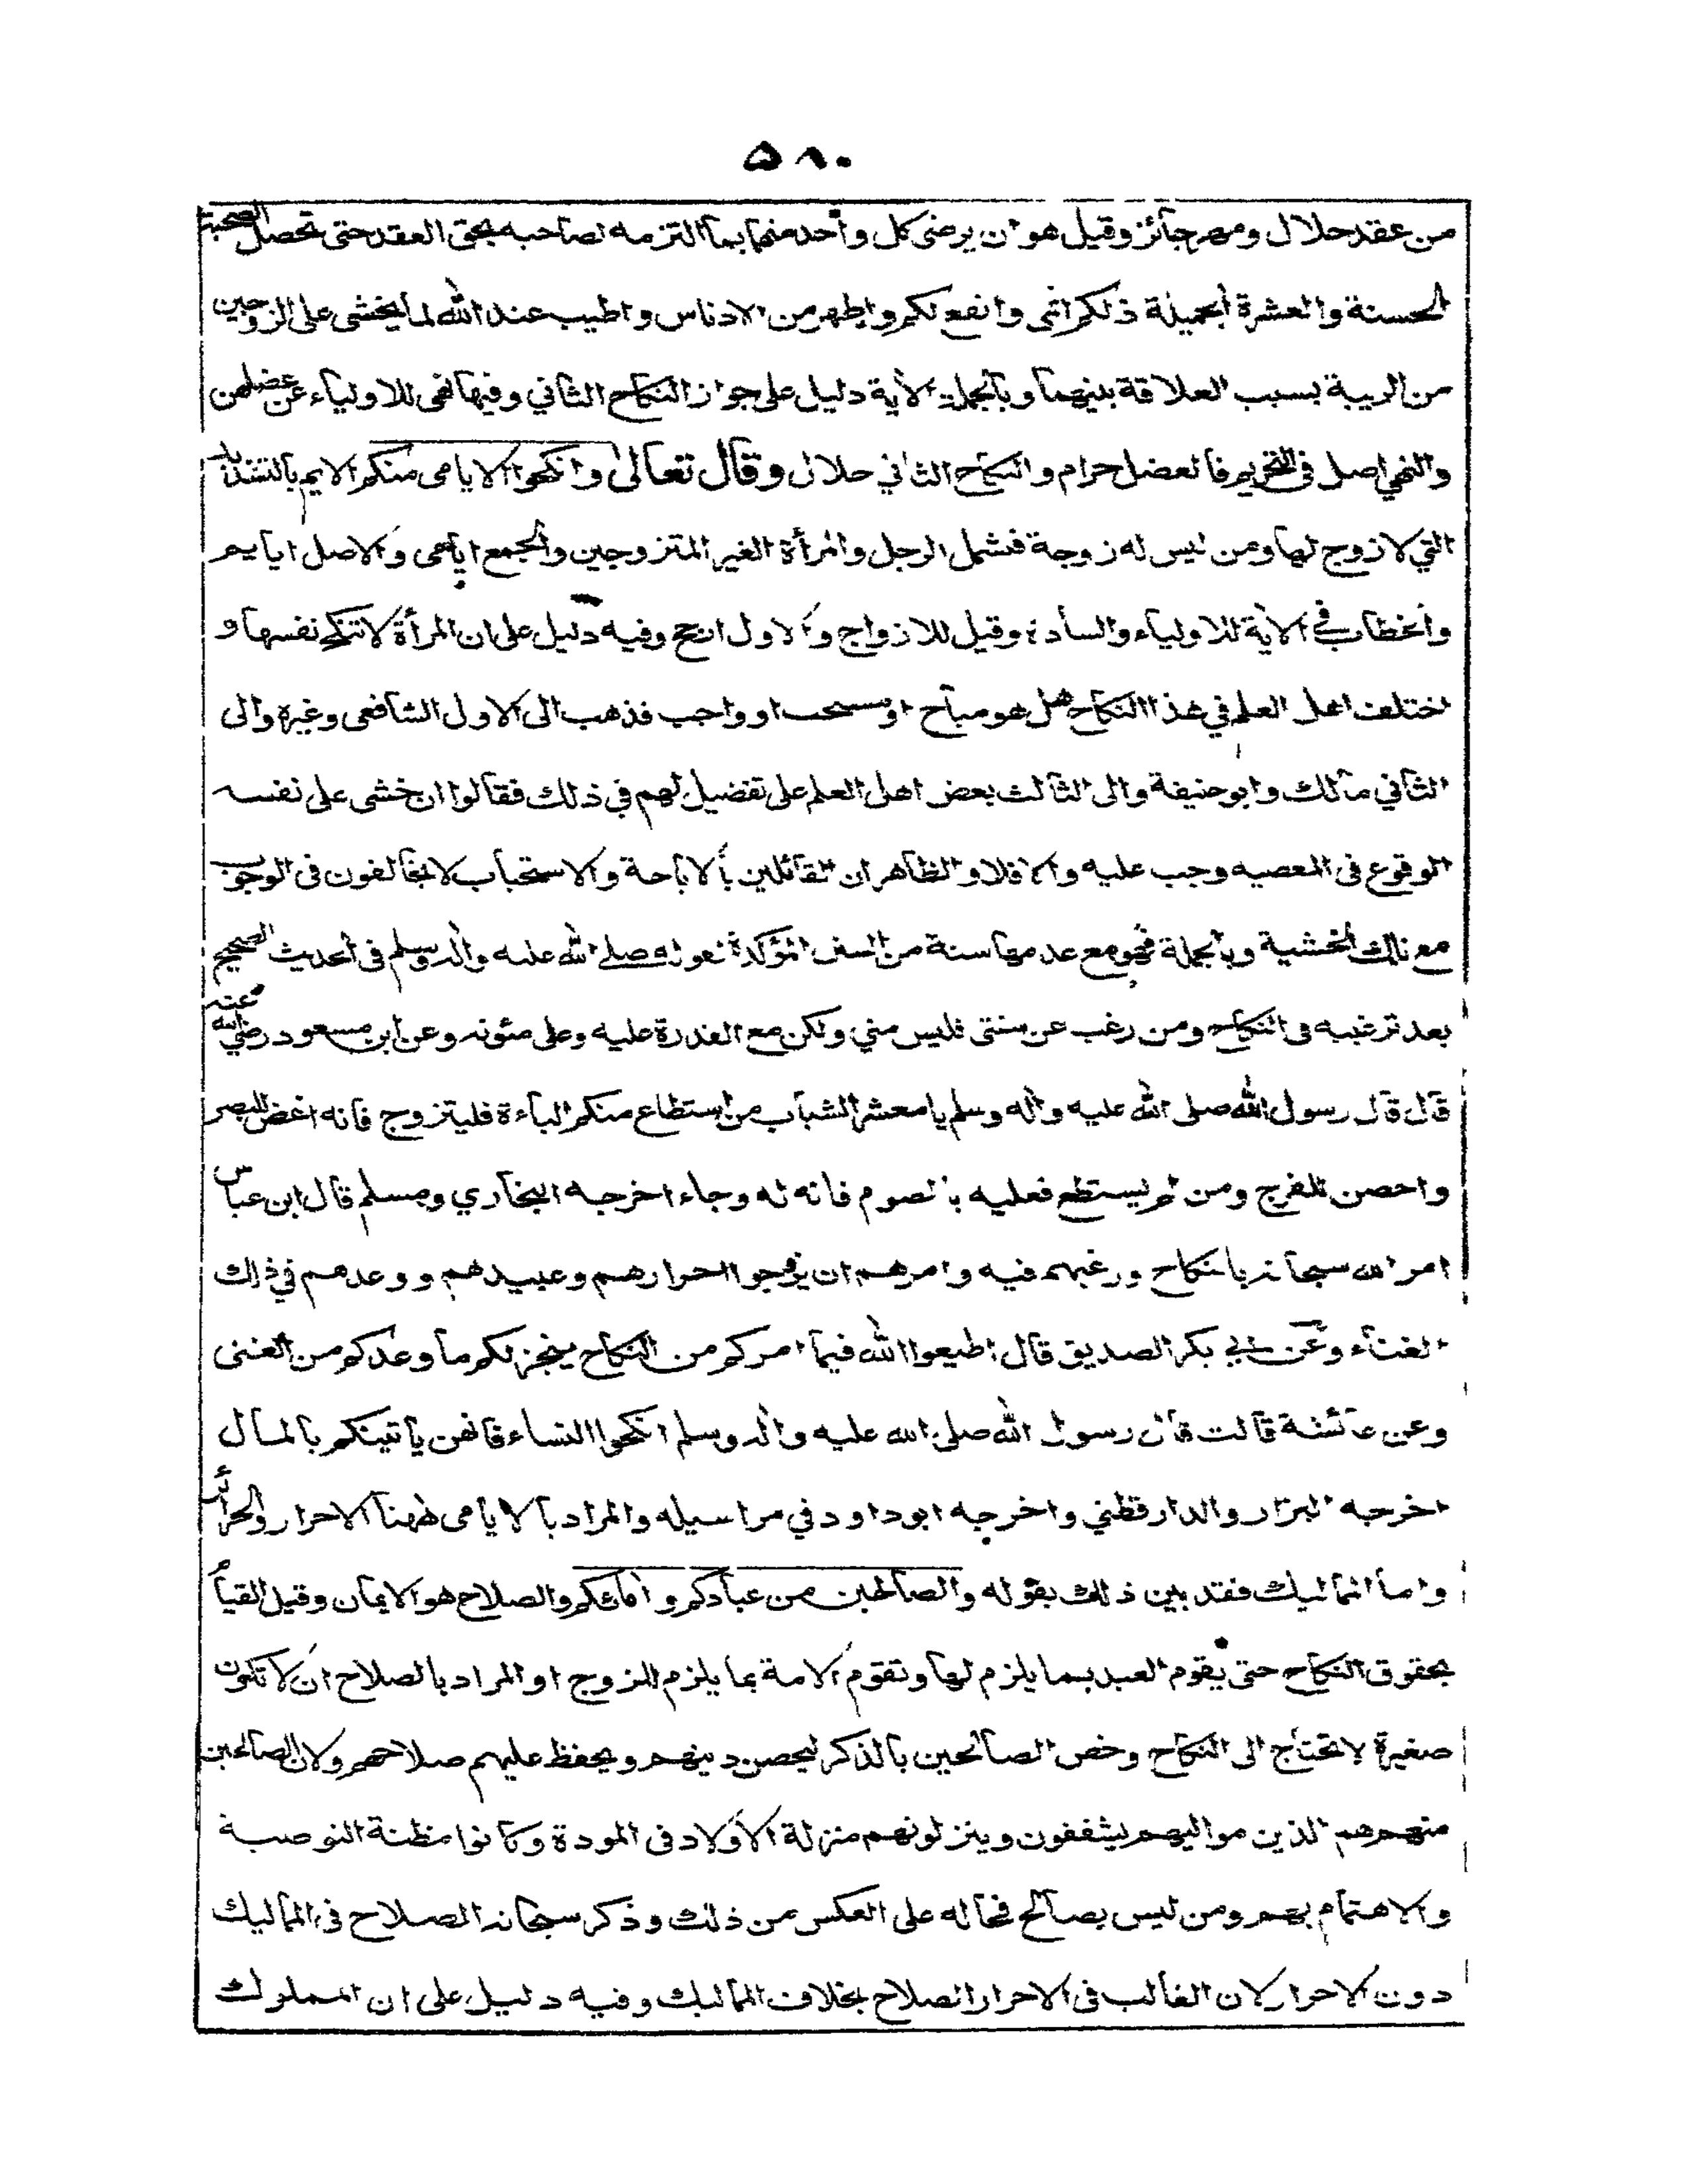 ۵۸۰
من عقد حلال ومهر جائز وقيل هو ان يرضى كل واحد منهما بما التزمه لصاحبه بحق العقد حتى تحصل الصحبة
الحسنة والعشرة الجميلة ذلكم ازكى وانفع لكم واطهر من الادناس واطيب عند الله لما يخشى على الزوجين
من الريبة بسبب العلاقة بينهما وبالجملة الآية دليل على جواز النكاح الثاني وفيها نهى للاولياء عن عضلهن
والنهي اصل في التحريم فالعضل حرام والنكاح الثاني حلال وقال تعالى وانكحوا الايامى منكم الايم بالتشديد
التي لا زوج لها ومن ليس له زوجة فشمل الرجل والمرأة الغير المتزوجين والجمع ايامى والاصل ايايم
والخطاب في الآية للاولياء والسادة وقيل للازواج والاول ارجح وفيه دليل على ان المرأة لا تنكح نفسها و
اختلف اهل العلم في هذا النكاح هل هو مباح او مستحب او واجب فذهب الى الاول الشافعي وغيره والى
الثاني مالك وابو حنيفة والى الثالث بعض اهل العلم على تفضيل لهم في ذلك فقالوا ان خشى على نفسه
الوقوع في المعصيه وجب عليه والا فلا والظاهر ان القائلين بالاباحة والاستحباب لا يخالفون في الوجوب
مع تلك الخشية وبالجملة فهو مع عدمها سنة من السنن المؤكدة لقوله صلى الله عليه وآله وسلم في الحديث الصحيح
بعد ترغيبه في النكاح ومن رغب عن سنتى فليس مني ولكن مع القدرة عليه وعلى مئونه وعن ابن مسعود رضي الله عنه
قال قال رسول الله صلى الله عليه وآله وسلم يا معشر الشباب من استطاع منكم الباءة فليتزوج فانه اغض للبصر
واحصن للفرج ومن لم يستطع فعليه بالصوم فانه له وجاء اخرجه البخاري ومسلم قال ابن عباس
امر الله سبحانه بالنكاح ورغبهم فيه وامرهم ان يزوجوا احرارهم وعبيدهم ووعدهم في ذلك
الغناء وعن ابي بكر الصديق قال اطيعوا الله فيما امركم من النكاح ينجز لكم ما وعدكم من الغنى
وعن عائشة قالت قال رسول الله صلى الله عليه وآله وسلم انكحوا النساء فانهن يأتينكم بالمال
اخرجه البزار والدارقطني واخرجه ابو داود في مراسيله والمراد بالايامى ههنا الاحرار والحرائر
واما المماليك فقد بين ذلك بقوله والصالحين من عبادكم وامائكم والصلاح هو الايمان وقيل القيام
بحقوق النكاح حتى يقوم العبد بما يلزم لها وتقوم الامة بما يلزم للزوج او المراد بالصلاح ان لا تكون
صغيرة لا تحتاج الى النكاح وخص الصالحين بالذكر ليحصن دينهم ويحفظ عليهم صلاحهم ولان الصالحين
منهم هم الذين مواليهم يشفقون وينزلونهم منزلة الاولاد في المودة وكانوا مظنة التوصية
والاهتمام بهم ومن ليس بصالح فحاله على العكس من ذلك وذكر سبحانه الصلاح في المماليك
دون الاحرار لان الغالب في الاحرار الصلاح بخلاف المماليك وفيه دليل على ان المملوك